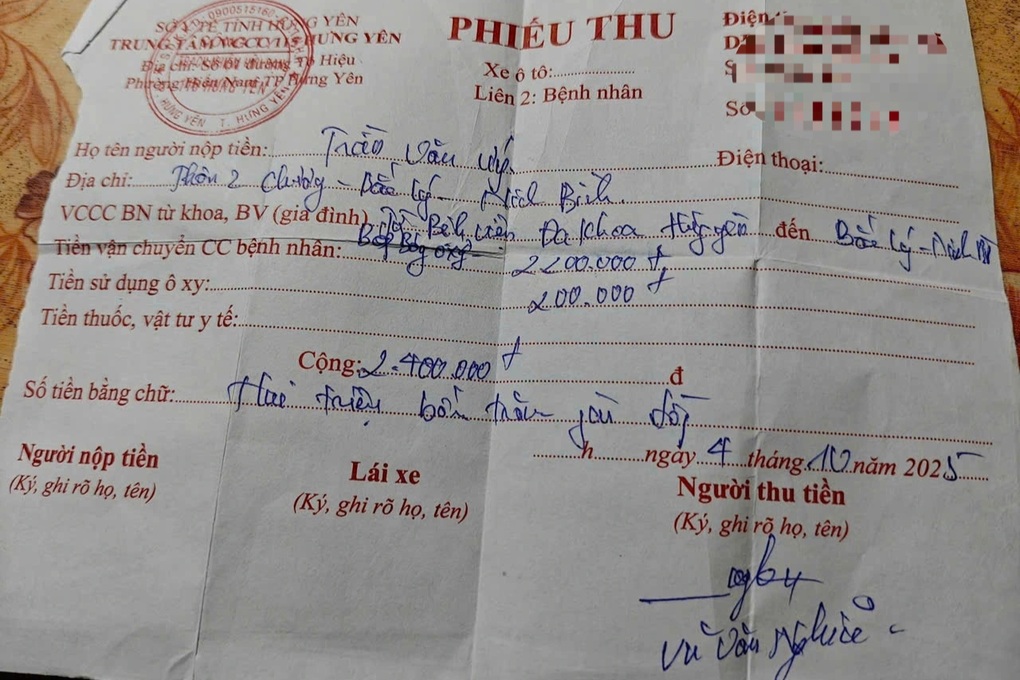 SỞ Y TẾ TỈNH HƯNG YÊN
TRUNG TÂM HƯNG YÊN
Địa chỉ: Số 01 đường Tô Hiệu
Phường Hiến Nam, TP Hưng Yên
HƯNG YÊN T. HƯNG YÊN
PHIẾU THU
Xe ô tô:
Liên 2: Bệnh nhân
Điện
Số
Họ tên người nộp tiền: Trần Văn
Điện thoại:
Địa chỉ: Thôn 2 - Bắc Lý - Ninh Bình.
VCCC BN từ khoa, BV (gia đình) Bệnh viện Đa khoa Hưng yên đến Bắc Lý - Ninh
Tiền vận chuyển CC bệnh nhân: 2200.000 đ
Tiền sử dụng ô xy: 200.000 đ
Tiền thuốc, vật tư y tế:
Cộng: 2.400.000 đ đ
Số tiền bằng chữ: Hai triệu bốn trăm đồng
h ngày 4 tháng 10 năm 2025
Người nộp tiền
(Ký, ghi rõ họ, tên)
Lái xe
(Ký, ghi rõ họ, tên)
Người thu tiền
(Ký, ghi rõ họ, tên)
Vũ Văn